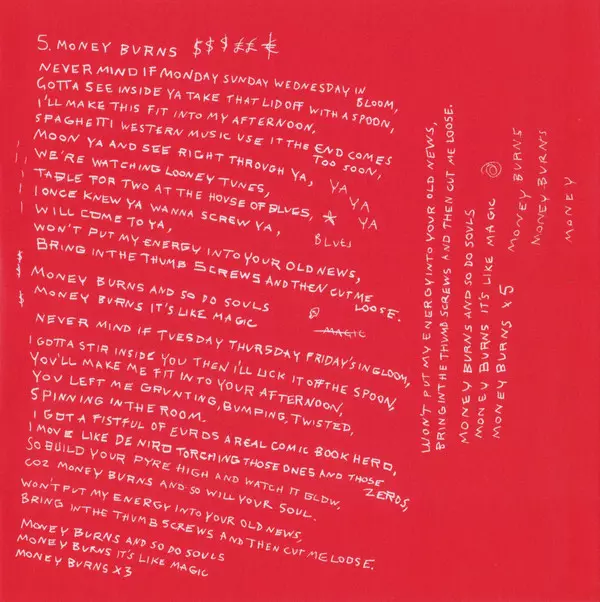 5. MONEY BURNS $ $ $ ££ €
NEVER MIND IF MONDAY SUNDAY WEDNESDAY IN BLOOM,
GOTTA SEE INSIDE YA TAKE THAT LID OFF WITH A SPOON,
I'LL MAKE THIS FIT INTO MY AFTERNOON,
SPAGHETTI WESTERN MUSIC USE IT THE END COMES TOO SOON,
MOON YA AND SEE RIGHT THROUGH YA, YA
WE'RE WATCHING LOONEY TUNES, YA
TABLE FOR TWO AT THE HOUSE OF BLUES, YA
I ONCE KNEW YA WANNA SCREW YA, BLUES
WILL COME TO YA,
WON'T PUT MY ENERGY INTO YOUR OLD NEWS,
BRING IN THE THUMB SCREWS AND THEN CUT ME LOOSE.
MONEY BURNS AND SO DO SOULS
MONEY BURNS IT'S LIKE MAGIC MAGIC
NEVER MIND IF TUESDAY THURSDAY FRIDAY'S IN GLOOM,
I GOTTA STIR INSIDE YOU THEN I'LL LICK IT OFF THE SPOON,
YOU'LL MAKE ME FIT INTO YOUR AFTERNOON,
YOU LEFT ME GRUNTING, BUMPING, TWISTED,
SPINNING IN THE ROOM.
I GOT A FISTFUL OF EUROS A REAL COMIC BOOK HERO,
I MOVE LIKE DE NIRO TORCHING THOSE ONES AND THOSE ZEROS,
SO BUILD YOUR PYRE HIGH AND WATCH IT GLOW,
COZ MONEY BURNS AND SO WILL YOUR SOUL.
WON'T PUT MY ENERGY INTO YOUR OLD NEWS,
BRING IN THE THUMB SCREWS AND THEN CUT ME LOOSE.
MONEY BURNS AND SO DO SOULS
MONEY BURNS IT'S LIKE MAGIC
MONEY BURNS X3
WON'T PUT MY ENERGY INTO YOUR OLD NEWS,
BRING IN THE THUMB SCREWS AND THEN CUT ME LOOSE.
MONEY BURNS AND SO DO SOULS
MONEY BURNS IT'S LIKE MAGIC
MONEY BURNS X 5
MONEY BURNS
MONEY BURNS
MONEY